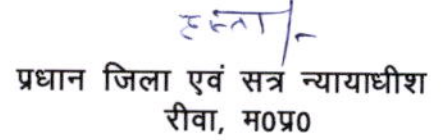 हस्ता/-
प्रधान जिला एवं सत्र न्यायाधीश
रीवा, म0प्र0